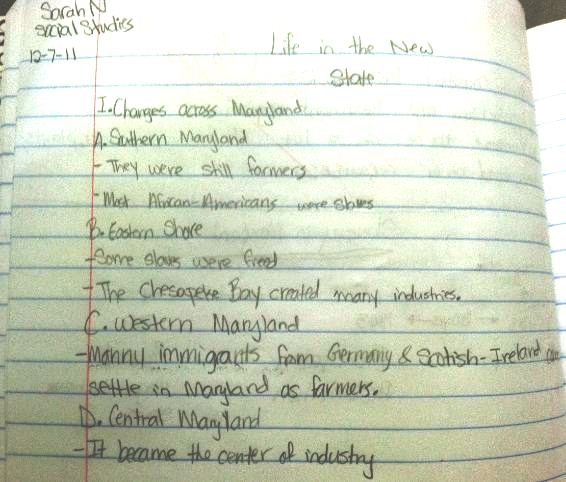 Sarah N
social Studies
12-7-11
Life in the New
State
I. Changes across Maryland
A. Suthern Maryland
- They were still farmers
- Most African-Americans were slaves
B. Eastern Shore
- Some slaves were freed
- The Chesapeke Bay created many industries.
C. Western Maryland
- Manny immigrants from Germany & Scotish-Ireland
settle in Maryland as farmers.
D. Central Maryland
- It became the center of industry